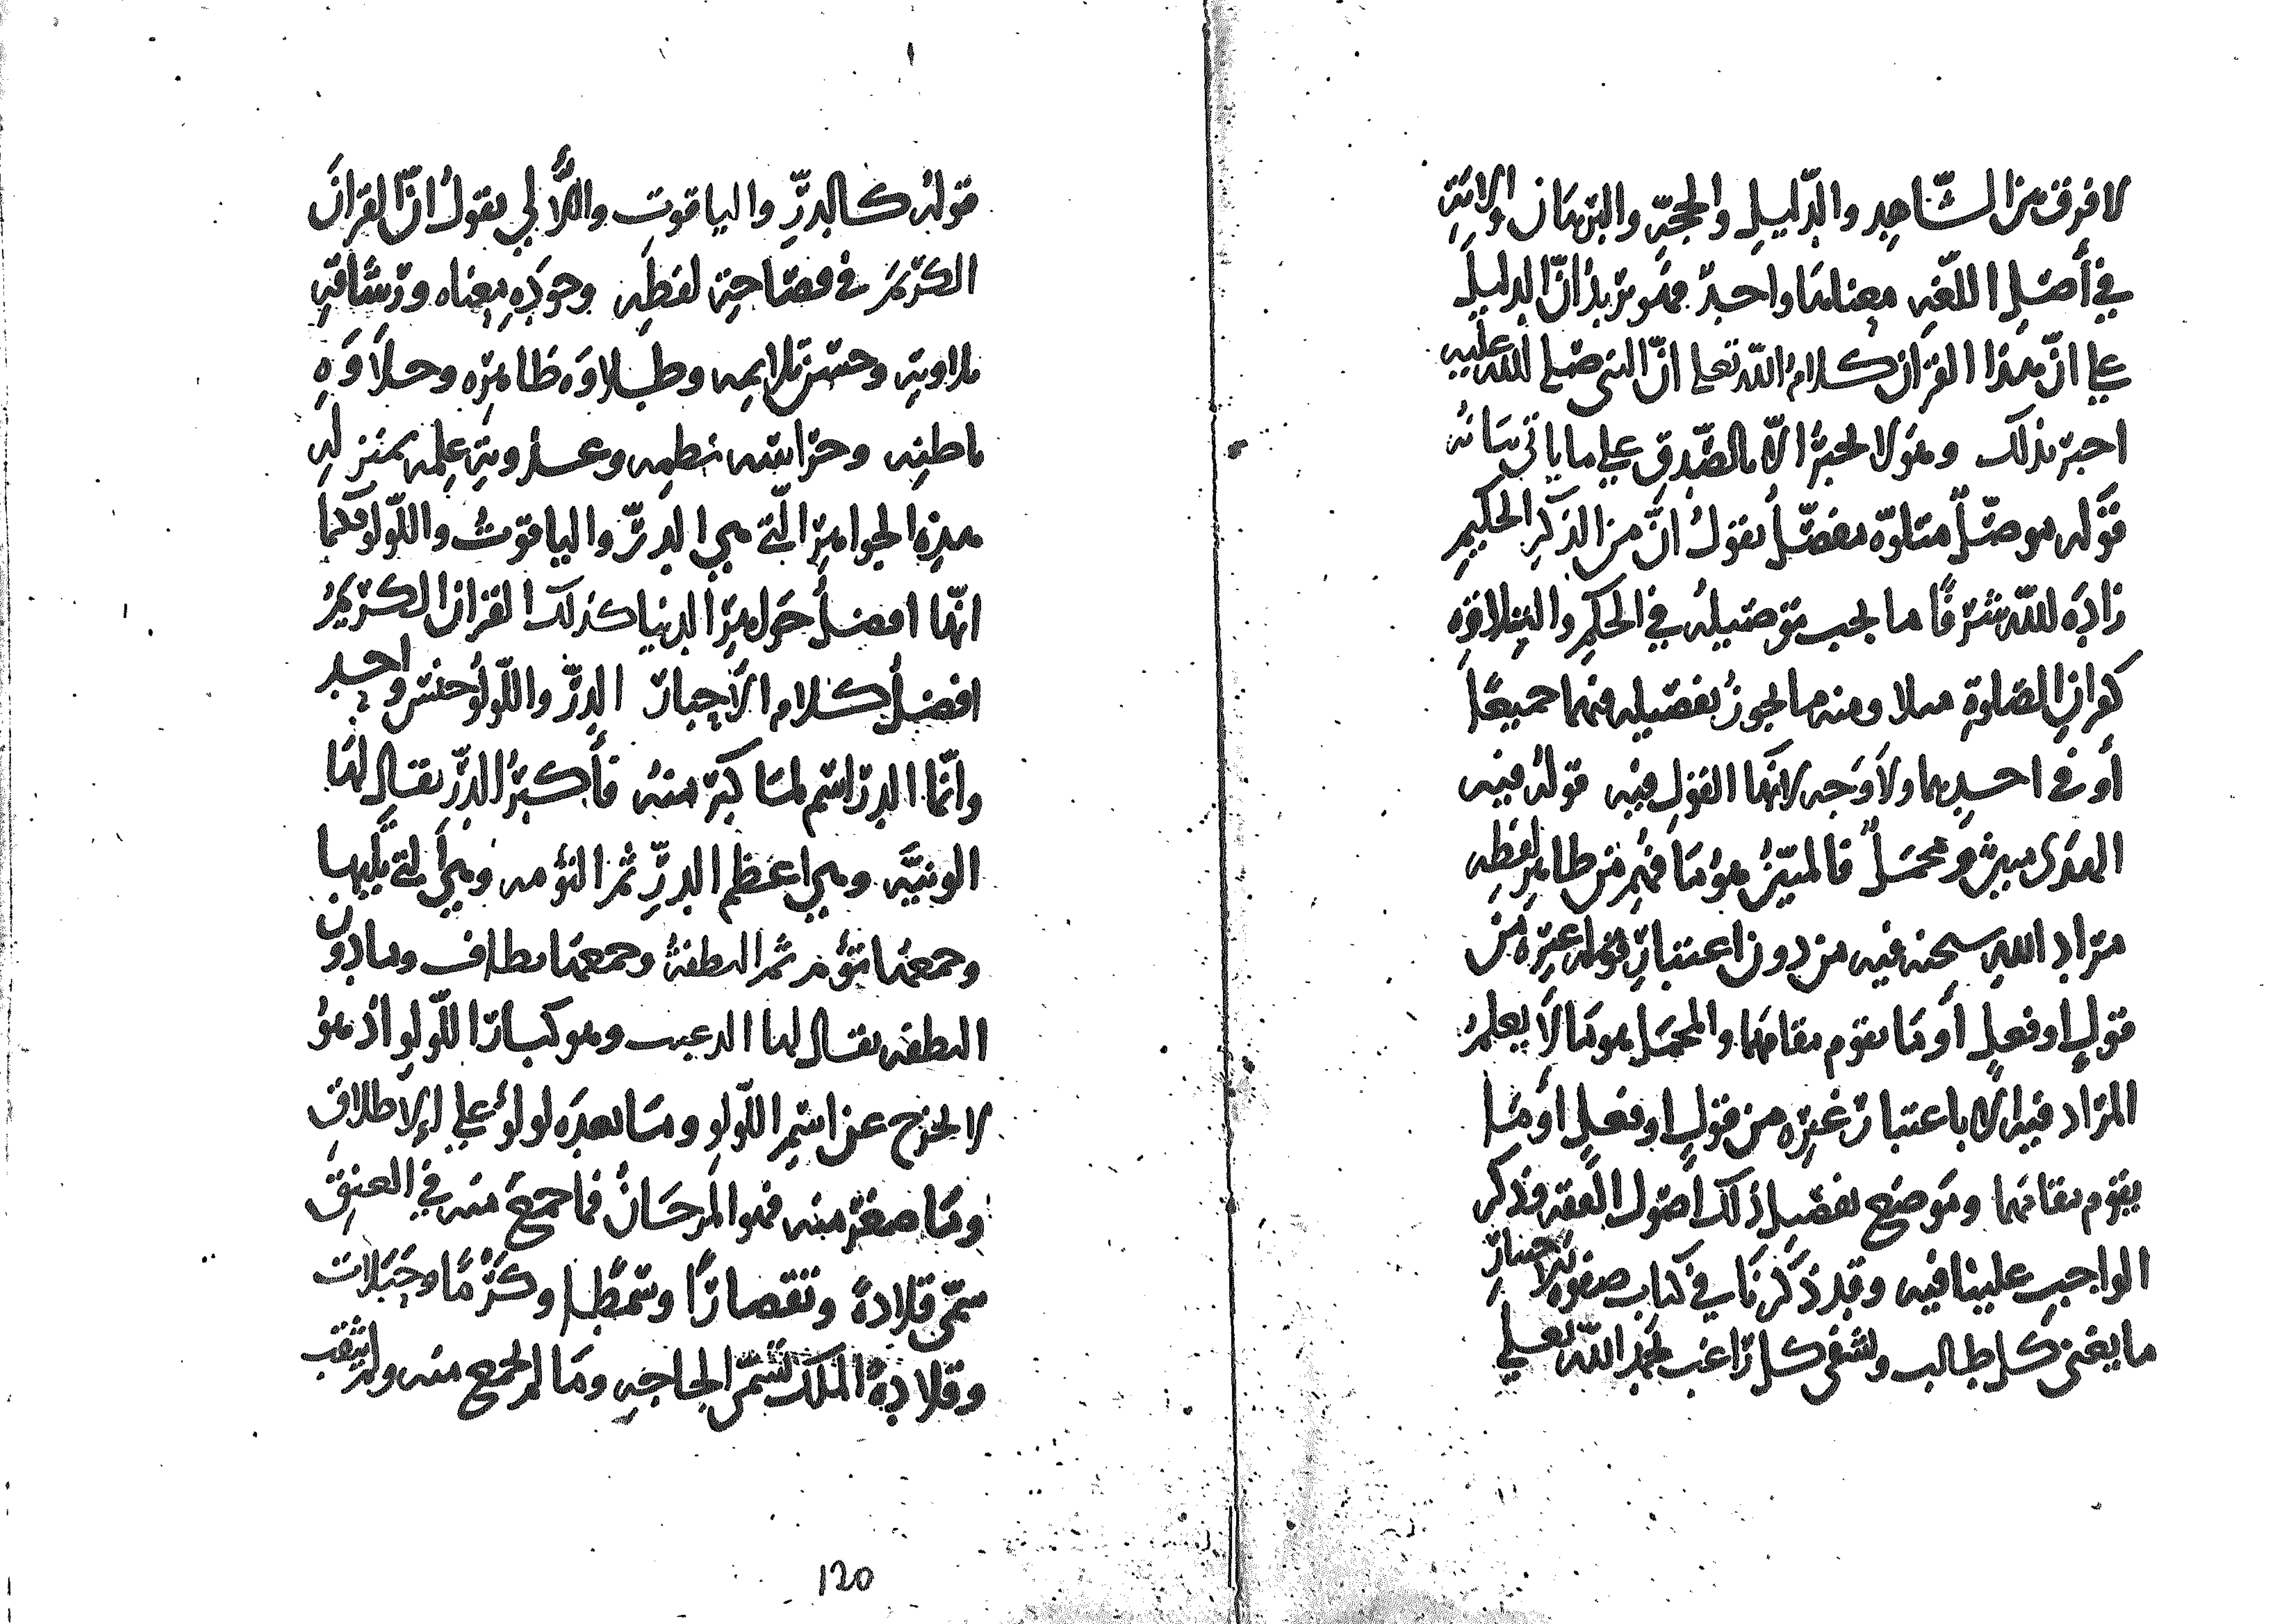 لا فرق من الشاهد والدليل والحجة والبرهان والآية
في أصل اللغة معناها واحد فهو يريد ان الدليل
على ان هذا القرآن كلام الله تعلى ان النبى صلى الله عليه
اخبر بذلك وهو لا يخبر الا بالصدق على ما ياتي بيانه
قوله موصل متلوه مفصل يقول ان من الذكر الحكيم
زاده الله شرفا ما يجب توصيله في الحكم والتلاوة
كقران الصلوة مثلا ومنه ما يجوز تفصيله فيهما جميعا
أو في احديهما ولا وجه لانها القول فيه قوله فيه
الهدى مبين ومجمل فالمبين هو ما فهم من ظاهر لفظه
مراد الله سبحنه فيه من دون اعتبار غيره من
قول او فعل أو ما يقوم مقامهما والمجمل هو ما لا يعلم
المراد فيه الا باعتبار غيره من قول او فعل أو ما
يقوم مقامهما وموضع تفصيل ذلك اصول الفقه وذكر
الواجب علينا فيه وقد ذكرنا في كتاب صفوة الاختيار
ما يغني كل طالب ويشفي كل راغب بحمد الله تعلى
قوله كالدر والياقوت واللآلي يقول ان القرآن
الكريم في فصاحة لفظه وجودة معناه ورشاقة
تلاوته وحسن تلايمه وطلاوة ظاهره وحلاوة
باطنه وجزالته نظمه وعذوبة علمه بمنزله
هذه الجواهر التي هي الدر والياقوت واللولو فكما
انها افضل جواهر الدنيا كذلك القران الكريم
افضل كلام الأحبار الدر واللولؤ جنس واحد
وانما الدر اسم لما كبر منه فأكبر الدر يقال لها
الونية وهي اعظم الدر ثم التؤمه وهي التي تليها
وجمعها تؤم ثم النطفة وجمعها نطاف وما دون
النطفه يقال لها الدعبب وهو كبار اللولو اذ هو
لا يخرج عن اسم اللولو وما بعده لولؤ على الاطلاق
وما صغر منه فهو المرجان فما جمع منه في العنق
سمى قلادة وتقصارا وسمطا وكرما وحبلات
وقلادة الملك تسمى الحاجه وما لم يجمع منه ولم يثقب
120